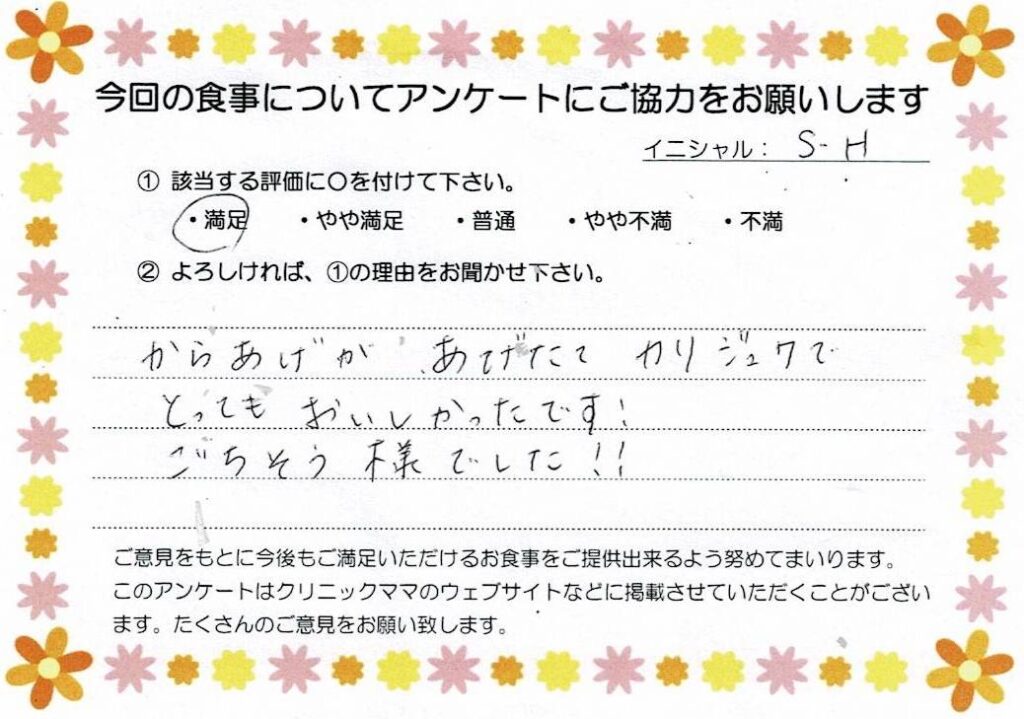 今回の食事についてアンケートにご協力をお願いします
イニシャル： S-H
① 該当する評価に〇を付けて下さい。
・満足 ・やや満足 ・普通 ・やや不満 ・不満
② よろしければ、①の理由をお聞かせ下さい。
からあげが あげたて カリジュワで
とっても おいしかったです!
ごちそう様でした!!
ご意見をもとに今後もご満足いただけるお食事をご提供出来るよう努めてまいります。
このアンケートはクリニックママのウェブサイトなどに掲載させていただくことがござい
ます。たくさんのご意見をお願い致します。